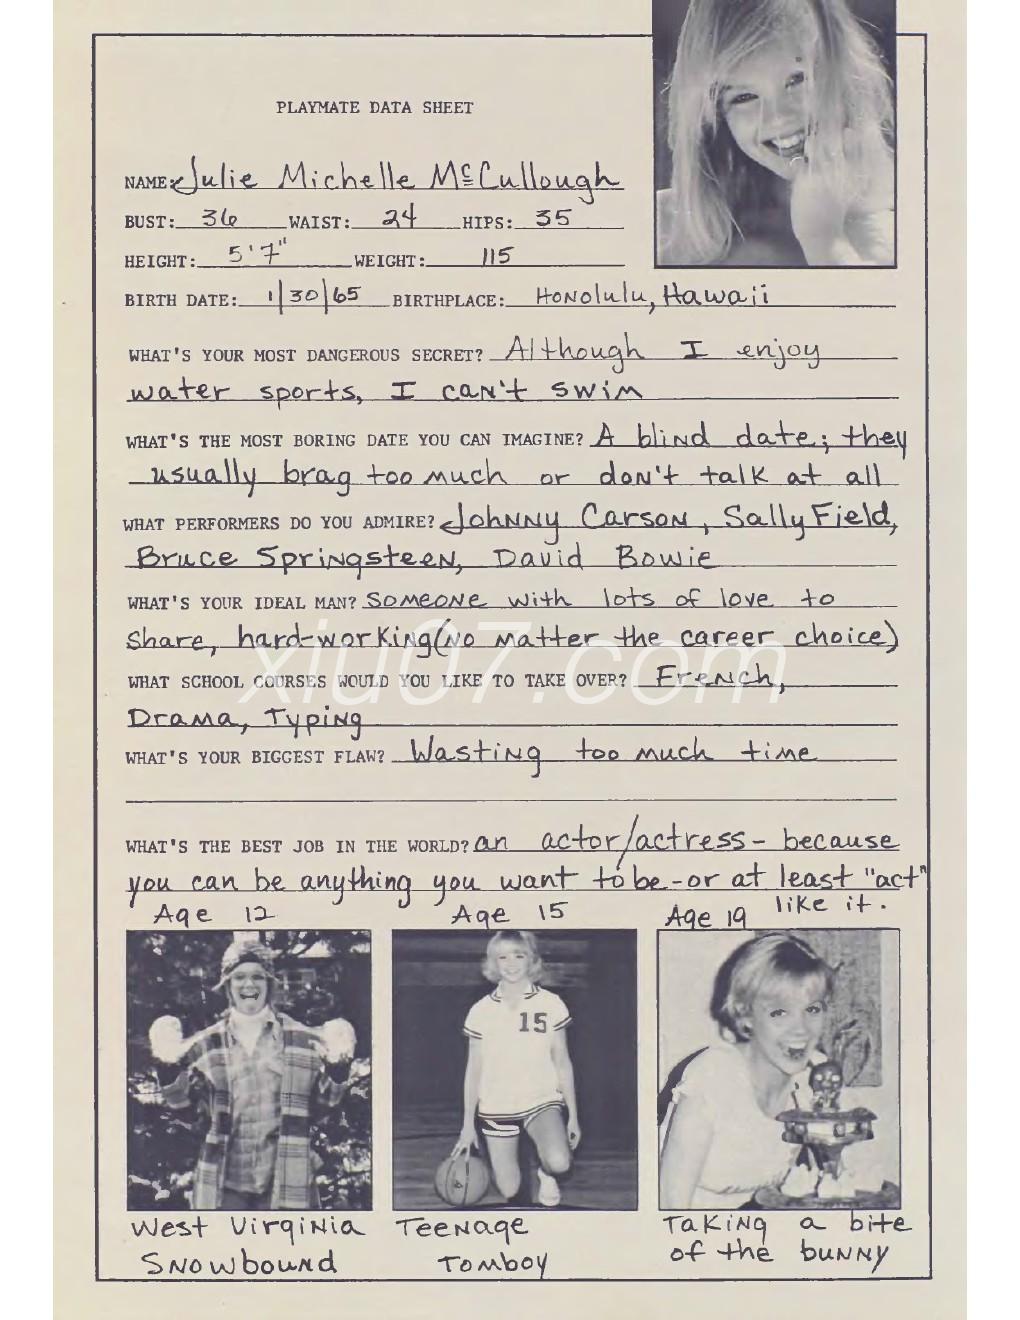 PLAYMATE DATA SHEET
NAME: Julie Michelle McCullough
BUST: 36 WAIST: 24 HIPS: 35
HEIGHT: 5'7" WEIGHT: 115
BIRTH DATE: 1/30/65 BIRTHPLACE: Honolulu, Hawaii
WHAT'S YOUR MOST DANGEROUS SECRET? Although I enjoy
water sports, I can't swim
WHAT'S THE MOST BORING DATE YOU CAN IMAGINE? A blind date; they
usually brag too much or don't talk at all
WHAT PERFORMERS DO YOU ADMIRE? Johnny Carson, Sally Field,
Bruce Springsteen, David Bowie
WHAT'S YOUR IDEAL MAN? Someone with lots of love to
share, hard-working (no matter the career choice)
xiu07.com
WHAT SCHOOL COURSES WOULD YOU LIKE TO TAKE OVER? French,
Drama, Typing
WHAT'S YOUR BIGGEST FLAW? Wasting too much time
WHAT'S THE BEST JOB IN THE WORLD? an actor/actress - because
you can be anything you want to be - or at least "act"
like it.
Age 12 Age 15 Age 19
15
West Virginia Teenage Taking a bite
Snowbound Tomboy of the bunny